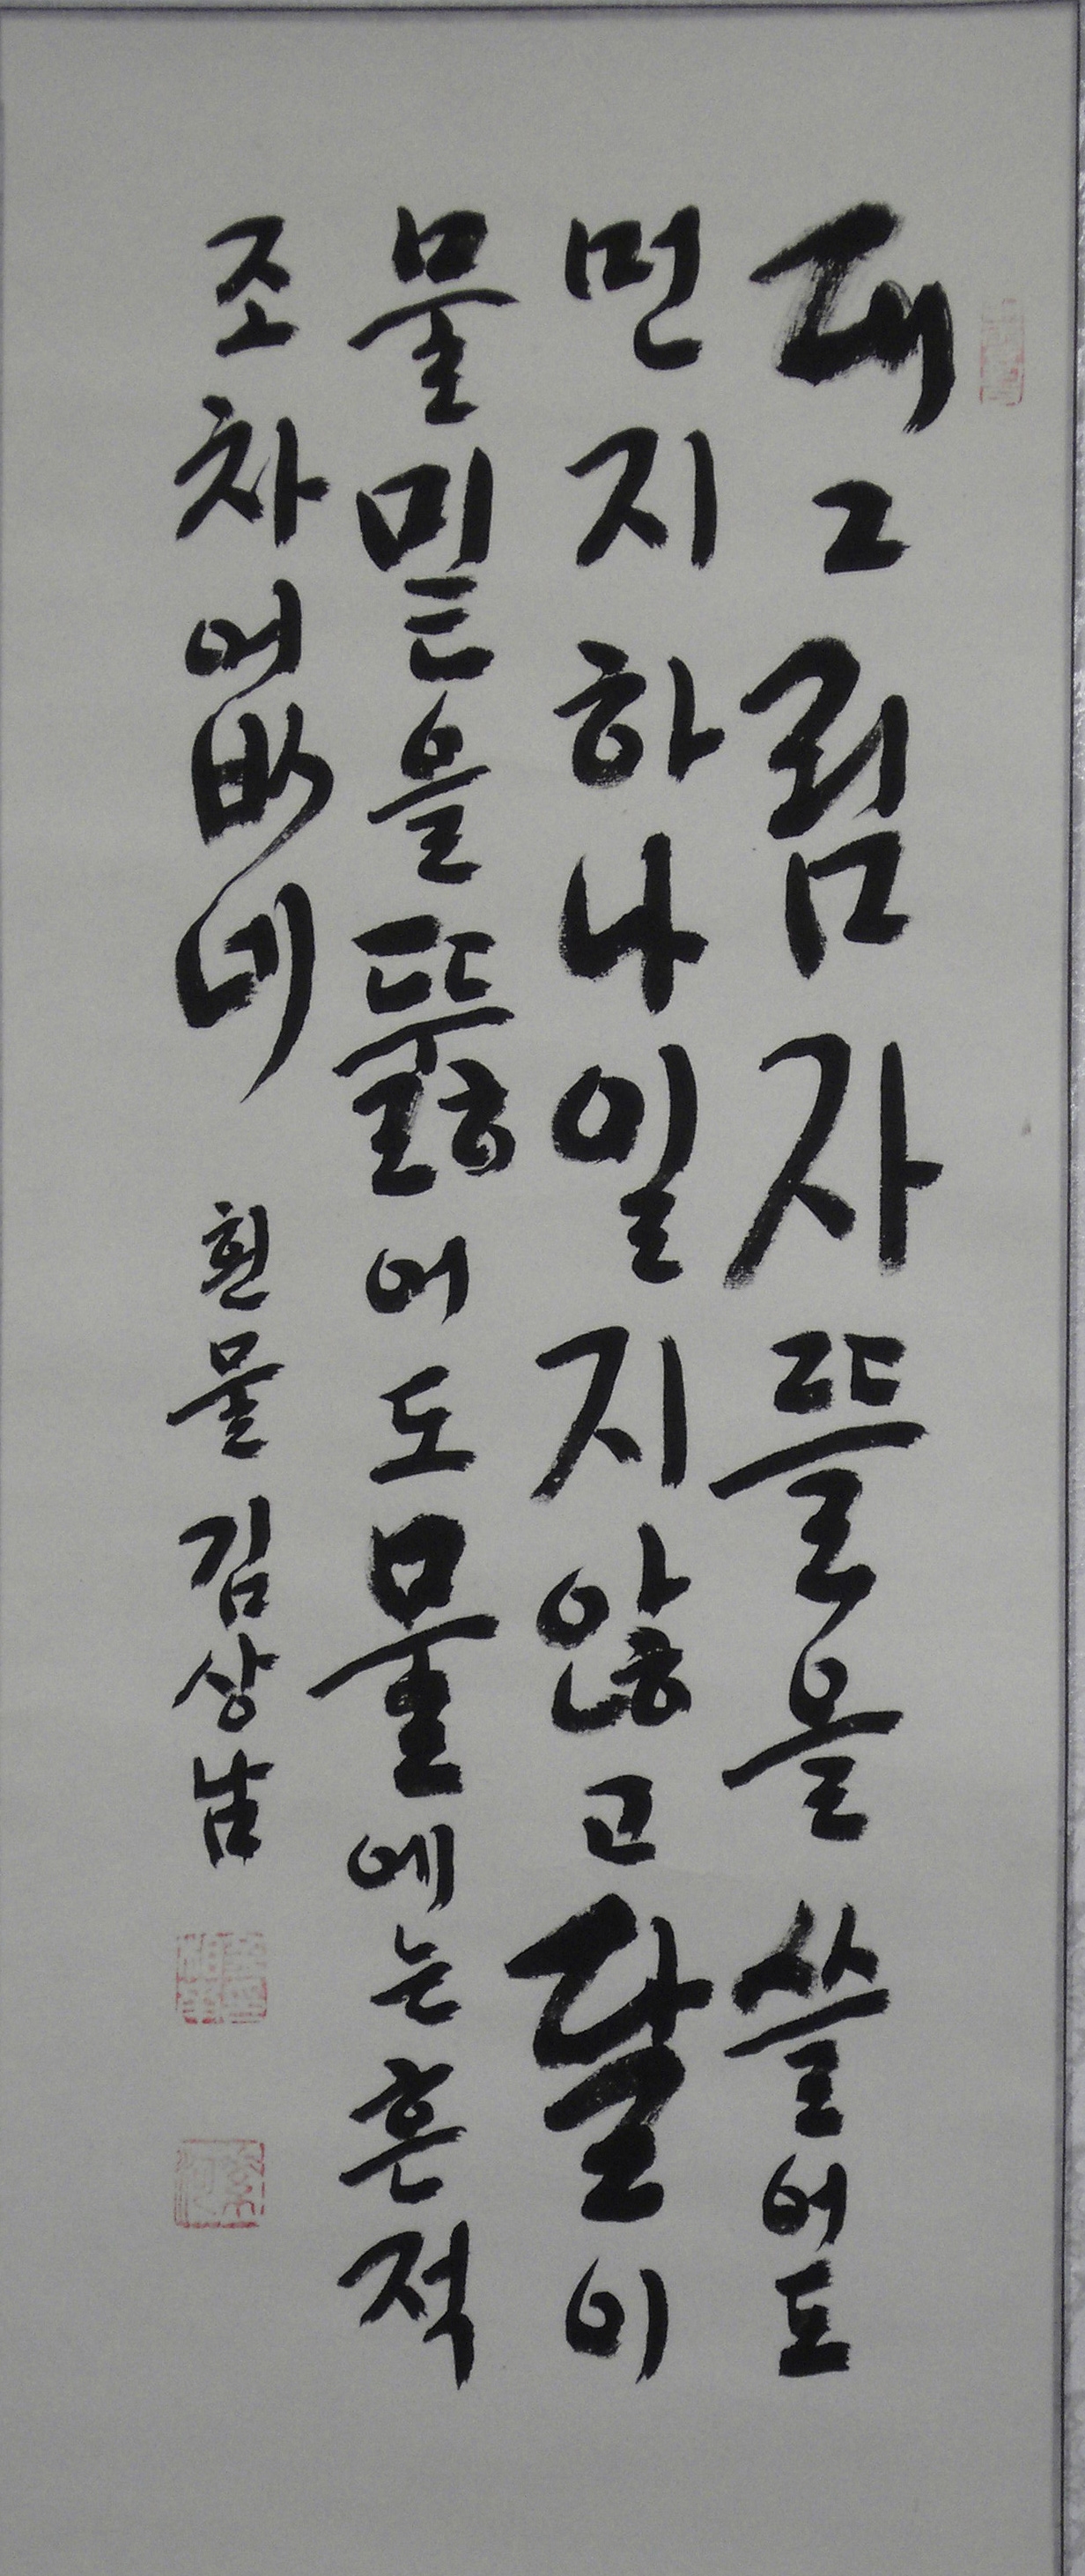 대그림자뜰을쓸어도
먼지하나일지않고달이
물밑을뚫어도물에는흔적
조차어ᄡᅥ네 흰물김상남